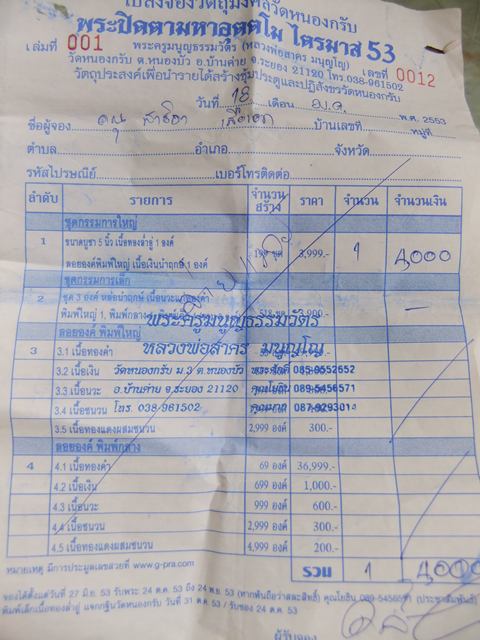 ใบสั่งจองวัตถุมงคลวัดหนองกรับ
พระปิดตามหาอุตตโม ไตรมาส 53
เล่มที่ 001 พระครูมนูญธรรมวัตร (หลวงพ่อสาคร มนุญโญ) เลขที่ 0012
วัดหนองกรับ ต.หนองบัว อ.บ้านค่าย จ.ระยอง 21120 โทร.038-961502
วัตถุประสงค์เพื่อนำรายได้สร้างซุ้มประตูและปฏิสังขรวัดหนองกรับ
วันที่ 18 เดือน พ.ศ. 2553
ชื่อผู้จอง คุณ บ้านเลขที่ หมู่ที่
ตำบล อำเภอ จังหวัด
รหัสไปรษณีย์ เบอร์โทรติดต่อ
ลำดับ รายการ จำนวนสร้าง ราคา จำนวน จำนวนเงิน
ชุดกรรมการใหญ่
1 ขนาดบูชา 5 นิ้ว เนื้อทองล่ำอู่ 1 องค์
ลอยองค์พิมพ์ใหญ่ เนื้อเงินนำฤกษ์ 1 องค์ 199 ชุด 3,999.- 1 4,000
ชุดกรรมการเล็ก
2 ชุด 3 องค์ หล่อนำฤกษ์
พิมพ์ใหญ่ 1, พิมพ์กลาง 3,900.- -
พระครูมนูญธรรมวัตร
ลอยองค์ พิมพ์ใหญ่
หลวงพ่อสาคร มนุญโญ
3 3.1 เนื้อทองคำ
3.2 เนื้อเงิน วัดหนองกรับ ม.3 ต.หนองบัว 085-9552652
3.3 เนื้อนวะ อ.บ้านค่าย จ.ระยอง 21120 คุณโยธิน 089-5456571
3.4 เนื้อชนวน โทร. 038-961502 087-9293014
3.5 เนื้อทองแดงผสมชนวน 2,999 องค์ 300.-
ลอยองค์ พิมพ์กลาง
4 4.1 เนื้อทองคำ 69 องค์ 36,999.-
4.2 เนื้อเงิน 699 องค์ 1,000.-
4.3 เนื้อนวะ 999 องค์ 600.-
4.4 เนื้อชนวน 2,999 องค์ 300.-
4.5 เนื้อทองแดงผสมชนวน 4,999 องค์ 200.-
หมายเหตุ มีการประมูลเลขสวยที่ www.g-pra.com รวม 1 4,000
จองได้ตั้งแต่วันที่ 27 มิย. 53 รับพระ 24 ต.ค. 53 ถึง 24 พ.ย. 53 (หากพ้นถือว่าสละสิทธิ์) คุณโยธิน
พิมพ์เล็กเนื้อทองล่ำอู่ แจกกฐินวัดหนองกรับ วันที่ 31 ต.ค. 53 / รับของ 24 ต.ค. 53
ผู้รับจอง